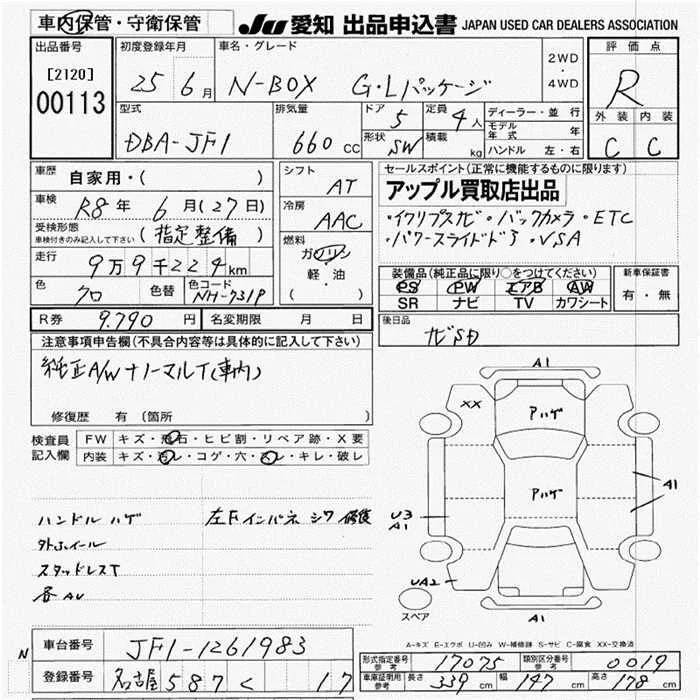 車内保管・守衛保管 JU 愛知 出品申込書 JAPAN USED CAR DEALERS ASSOCIATION
出品番号 初度登録年月 車名・グレード 評価点
[2120] 25 6月 N-BOX G・Lパッケージ 2WD・4WD R
00113
型式 排気量 ドア 5 定員 4人 ディーラー・並行 外装 内装
DBA-JF1 660cc 形状 SW 積載 kg モデル年式 年 C C
ハンドル 左・右
車歴 自家用・( ) シフト AT セールスポイント(正常に機能するものに限ります)
アップル買取店出品
車検 R8年 6月(27日) 冷房 AAC
・イクリプスナビ・バックカメラ・ETC
受検形態 車検付きのみ記入して下さい (指定整備)
・パワースライドドア・VSA
走行 9万9千224km 燃料 ガソリン 軽・油 ( )
色 クロ 色替 色コード NH-731P
装備品(純正品に限り○をつけてください) 新車保証書
PS PW エアB AW 有・無
SR ナビ TV カワシート
R券 9.790円 名変期限 月 日
後日品
ナビSD
注意事項申告欄(不具合内容等は具体的に記入して下さい)
純正A/W+ノーマルT(車内)
修復歴 有 (箇所 )
検査員記入欄 FW キズ・飛石・ヒビ割・リペア跡・X要
内装 キズ・汚レ・コゲ・穴・スレ・キレ・破レ
A1
XX
アハゲ
アハゲ
A1
U3
A1
UA2
A1
スペア
ハンドルハゲ 左Fインパネ シワ 修復
外ホイール
スタッドレスT
各AU
A-キズ E-エクボ U-凹み W-補修跡 S-サビ C-腐食 XX-交換済
N 車台番号 JF1-1261983
登録番号 名古屋 587 く 17
形式指定番号 参考 17075 類別区分番号 参考 0019
車庫証明用 参考 長さ 339cm 幅 147cm 高さ 178cm